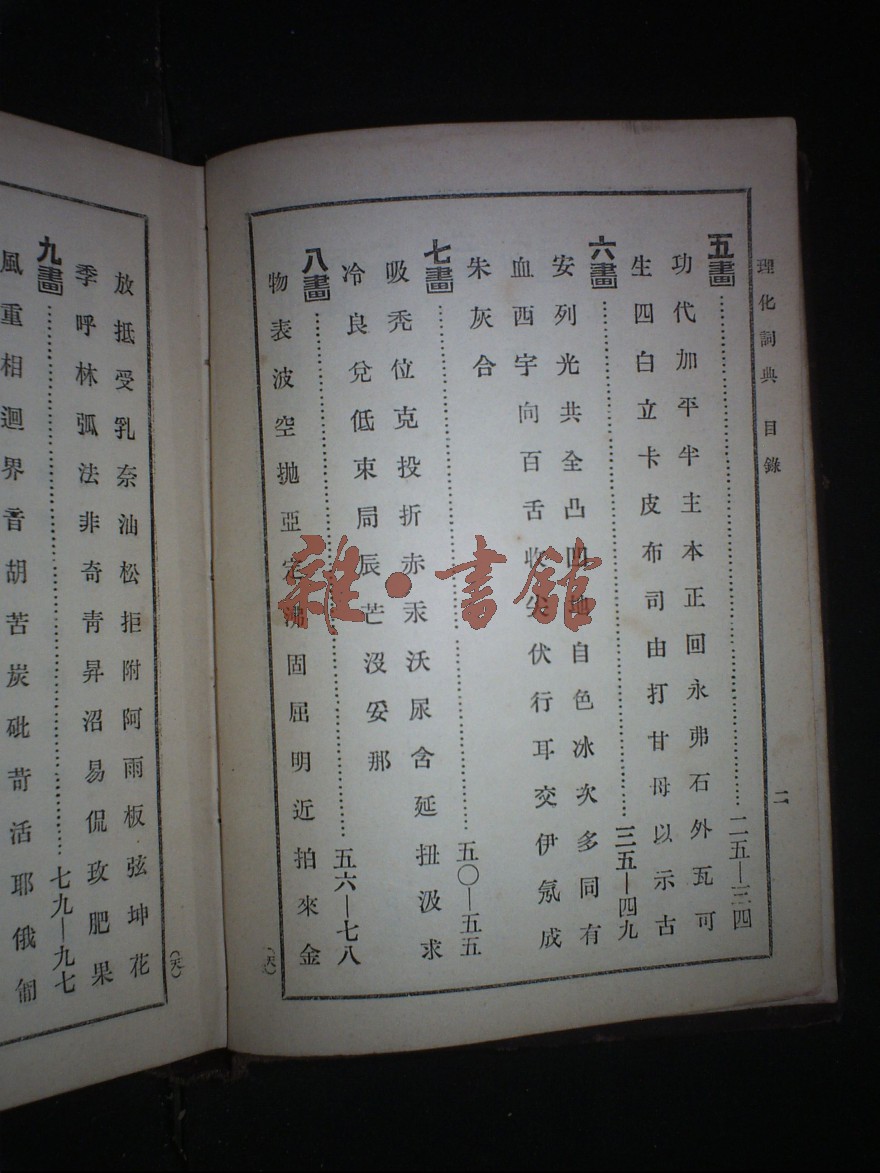 理化詞典　目錄
二
五畫……二五—三四
功代加平半主本正回永弗石外瓦可
生四白立卡皮布司由打甘母以示古
六畫……三五—四九
安列光共全凸凹地自色冰次多同有
血西宇向百舌收尖伏行耳交伊氖成
朱灰合
七畫……五〇—五五
吸禿位克投折赤汞沃尿含延扭汲求
冷良兌低束局辰芒沒妥那
八畫……五六—七八
物表波空拋亞定沸固屈明近拍來金
放抵受乳奈油松拒附阿雨板弦坤花
季呼林弧法非奇靑昇沼易侃玫肥果
九畫……七九—九七
風重相迴界音胡苦炭砒苛活耶俄
雜·書館